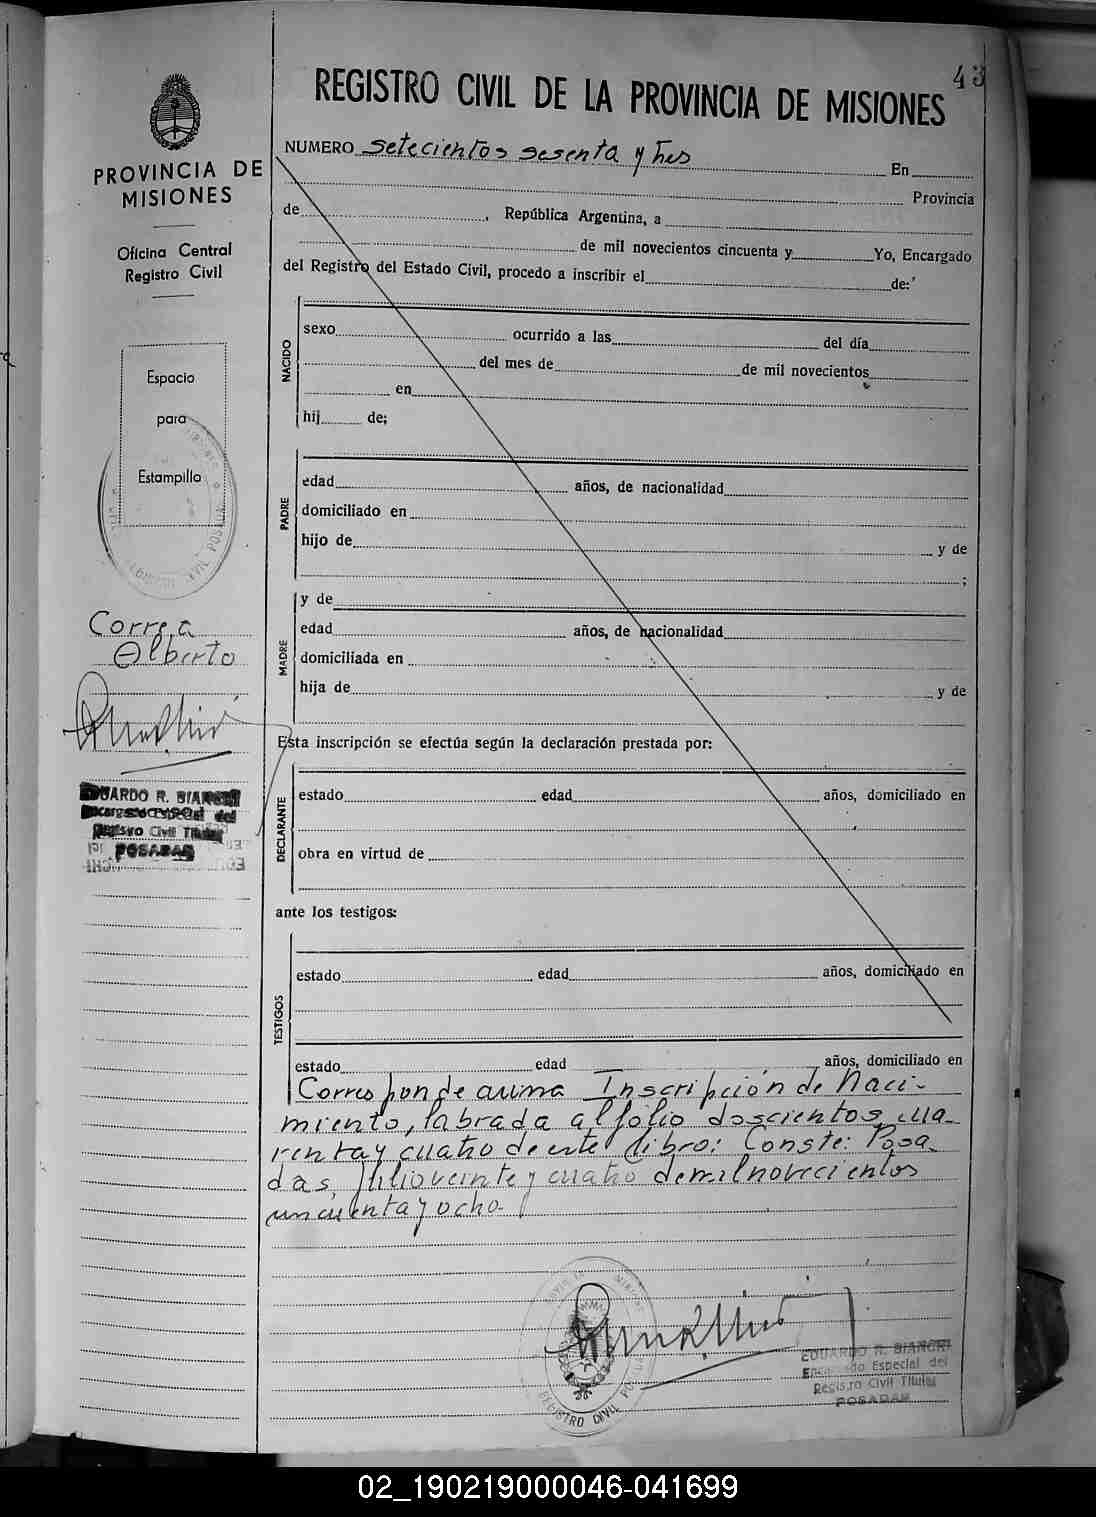 43
REGISTRO CIVIL DE LA PROVINCIA DE MISIONES
PROVINCIA DE
MISIONES
Oficina Central
Registro Civil
Espacio
para
Estampilla
Correa
Alberto
EDUARDO R. BIANCHI
Encargado Especial del
Registro Civil Titular
POSADAS
NUMERO setecientos sesenta y tres En
Provincia
de , República Argentina, a
de mil novecientos cincuenta y Yo, Encargado
del Registro del Estado Civil, procedo a inscribir el de:
NACIDO
sexo ocurrido a las del día
del mes de de mil novecientos
en
hij de;
PADRE
edad años, de nacionalidad
domiciliado en
hijo de y de
;
MADRE
y de
edad años, de nacionalidad
domiciliada en
hija de y de
Esta inscripción se efectúa según la declaración prestada por:
DECLARANTE
estado edad años, domiciliado en
obra en virtud de
ante los testigos:
TESTIGOS
estado edad años, domiciliado en
estado edad años, domiciliado en
Corresponde a una Inscripción de Naci-
miento, labrada al folio doscientos cua-
renta y cuatro de este libro: Conste: Posa-
das, Julio veinte y cuatro de mil novecientos
cincuenta y ocho.
REGISTRO CIVIL POSADAS
EDUARDO R. BIANCHI
Encargado Especial del
Registro Civil Titular
POSADAS
02_190219000046-041699